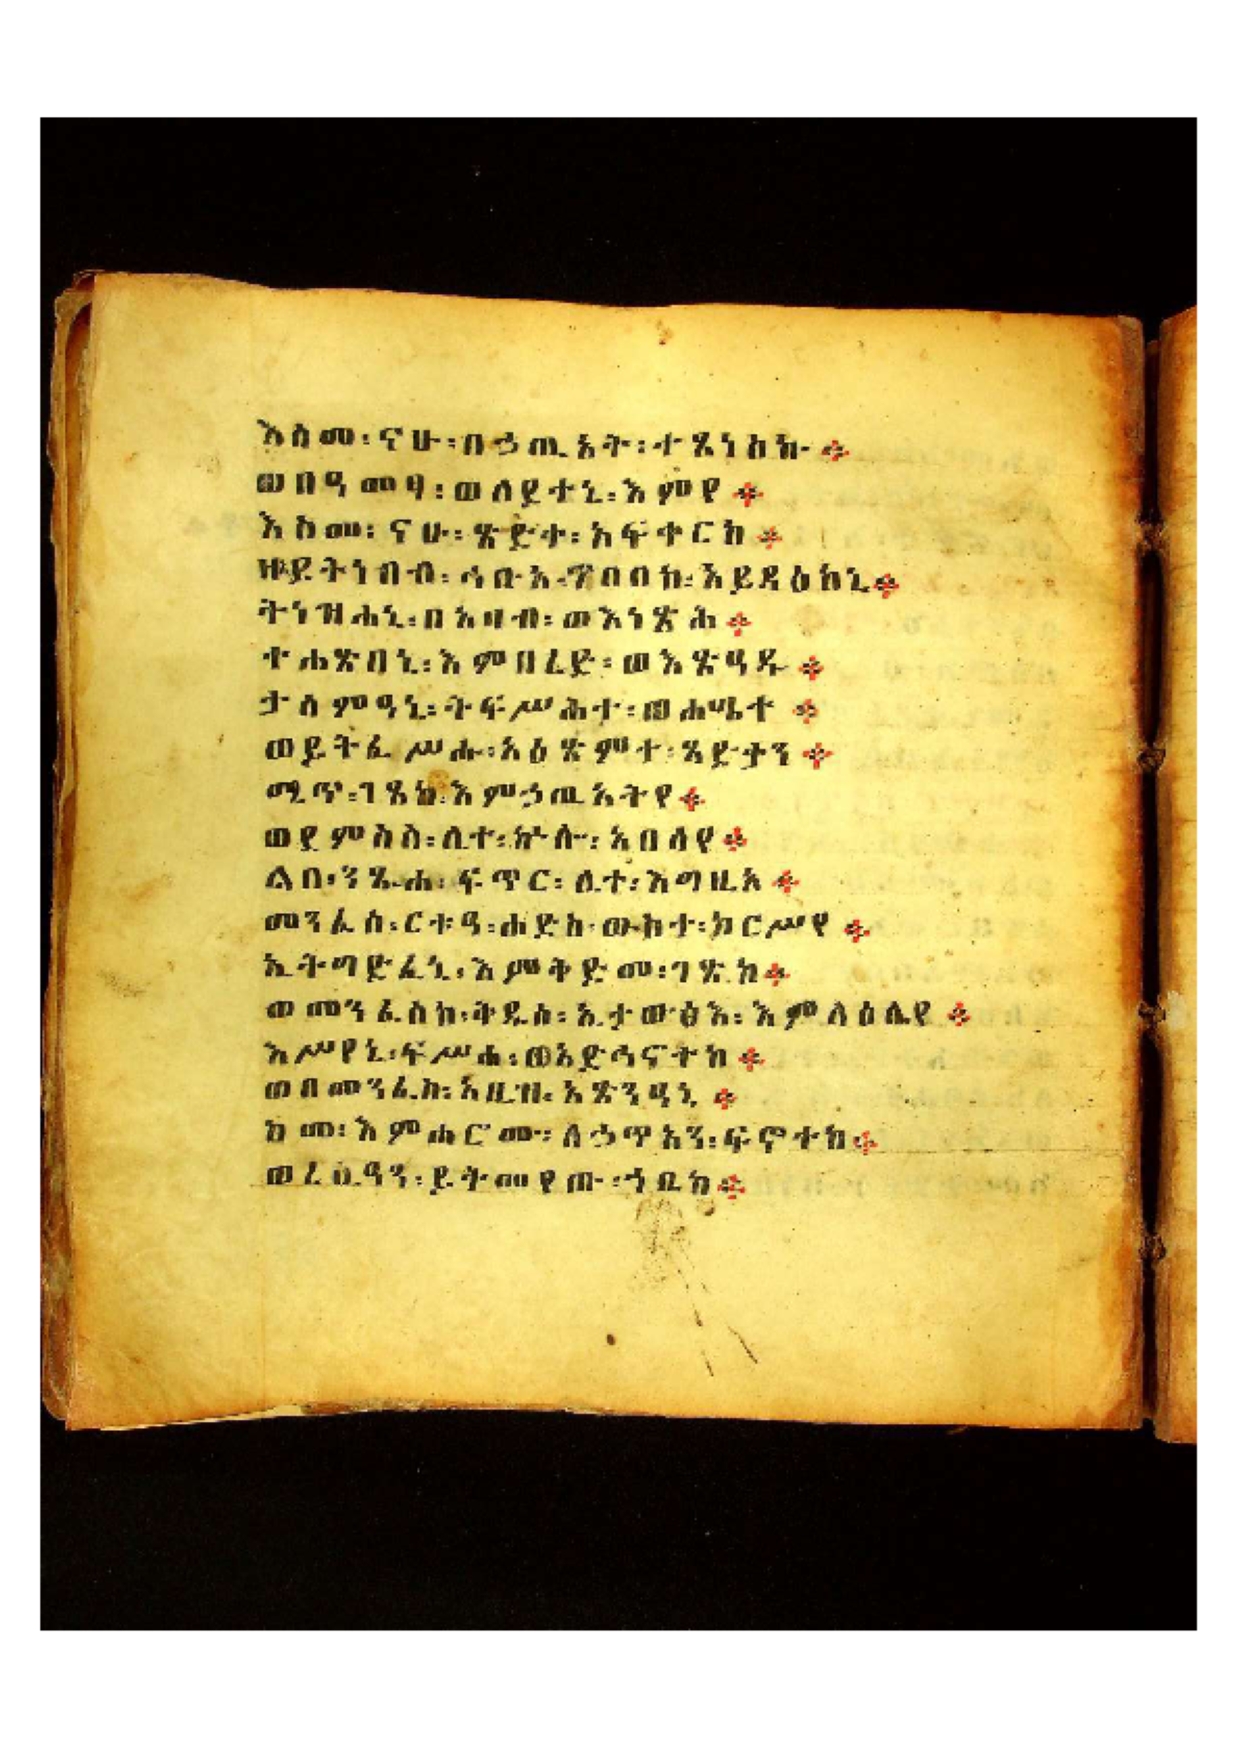 እስመ፡ ናሁ፡ በኃጢአት፡ ተፄነስኩ ፨
ወበዓመፃ፡ ወለደተኒ፡ እምየ ፨
እስመ፡ ናሁ፡ ጽድቀ፡ አፍቀርከ ፨
ዘይትነበብ፡ ኅቡአ፡ ጥበበከ፡ አይዳዕከኒ ፨
ትነዝሐኒ፡ በአዛብ፡ ወእነጽሕ ፨
ተሐጽበኒ፡ እምበረድ፡ ወእጽዓዱ ፨
ታሰምዓኒ፡ ትፍሥሕተ፡ ወሐሤተ ፨
ወይትፌሥሑ፡ አዕጽምተ፡ ጻድቃን ፨
ሚጥ፡ ገጸከ፡ እምኃጢአትየ ፨
ወደምስስ፡ ሊተ፡ ኵሎ፡ አበሳየ ፨
ልበ፡ ንጹሐ፡ ፍጥር፡ ሊተ፡ እግዚአ ፨
መንፈሰ፡ ርቱዓ፡ ሐድስ፡ ውስተ፡ ከርሥየ ፨
ኢትግድፈኒ፡ እምቅድመ፡ ገጽከ ፨
ወመንፈስከ፡ ቅዱሰ፡ ኢታውፅእ፡ እምላዕሌየ ፨
እሥየኒ፡ ፍሥሐ፡ ወአድኅኖትከ ፨
ወበመንፈስ፡ አዚዝ፡ አጽንዓኒ ፨
ከመ፡ እምሐሮሙ፡ ለኃጥአን፡ ፍኖተከ ፨
ወረሲዓን፡ ይትመየጡ፡ ኀቤከ ፨